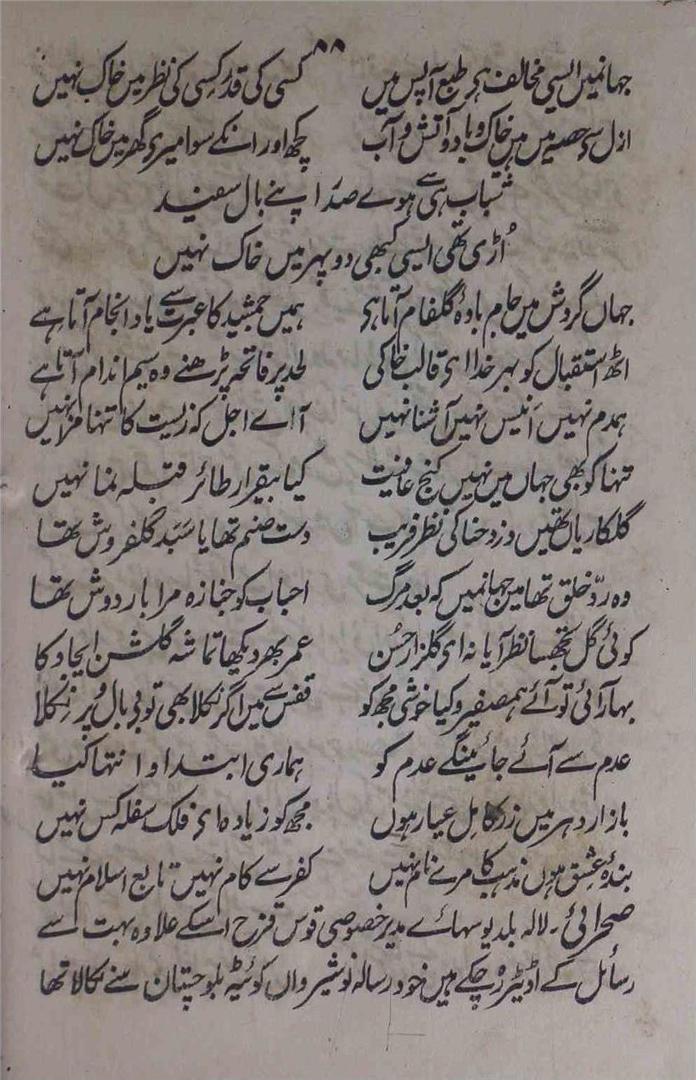 ۸۸
جہانمیں ایسی مخالف ہر طبع آپس میں کسی کی قدر کسی کی نظر میں خاک نہیں
ازل سے حصہ میں ہیں خاک و باد و آتش و آب کچھ اور انکے سوا میری گھر میں خاک نہیں
شباب ہی سے ہوے صدا اپنے بال سفید
اُڑی تھی ایسی کبھی دوپہر میں خاک نہیں
جہاں گردش میں جام بادۂ گلفام آتا ہی ہمیں جمشید کا عبرت سے یاد انجام آتا ہے
اٹھ استقبال کو بہر خدا ای قالب خاکی لحد پر فاتحہ پڑھنے وہ سیم اندام آتا ہے
ہمدم نہیں انیس نہیں آشنا نہیں آ اے اجل کہ زیست کا تنہا مزا نہیں
تنہا کو بھی جہاں میں نہیں کنج عافیت کیا بیقرار طائر قبلہ نما نہیں
گلکاریاں تھیں دزد حنا کی نظر فریب دست صنم تھا یا سبد گلفروش تھا
وہ ردّ خلق تھا میں جہانمیں کہ بعد مرگ احباب کو جنازہ مرا بار دوش تھا
کوئی گل تجھسا نظر آیا نہ ای گلزار حُسن عمر بھر دیکھا تماشہ گلشن ایجاد کا
بہار آئی تو آئے ہمصفیرو کیا خوشی مجھ کو قفس سے میں اگر نکلا بھی تو بی بال و پر نکلا
عدم سے آئے جائینگے عدم کو ہماری ابتدا و انتہا کیا
بازار دہر میں زر کامل عیار ہوں مجھ کو زیادہ ای فلک سفلہ کس نہیں
بندۂ عشق ہوں مذہب کا مرے نام نہیں کفر سے کام نہیں تابع اسلام نہیں
صحرائی۔ لالہ بلدیو سہائے مدیر خصوصی قوس قزح اسکے علاوہ بہت سے
رسائل کے اڈیٹر رہ چکے ہیں خود رسالہ نوشیرواں کوئٹہ بلوچستان سے نکالا تھا